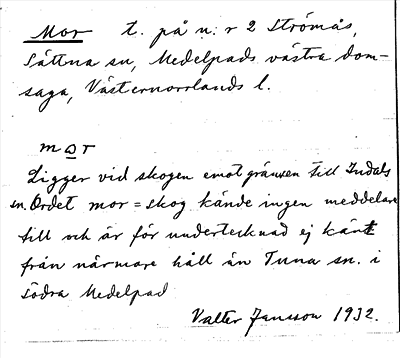 Mor t. på n:r 2 Strömås,
Sättna sn, Medelpads västra dom-
saga, Västernorrlands l.
mor
Ligger vid skogen emot gränsen till Indals
sn. Ordet mor = skog kände ingen meddelare
till och är för undertecknad ej känt
från närmare håll än Tuna sn. i
södra Medelpad
Valter Jansson 1932.